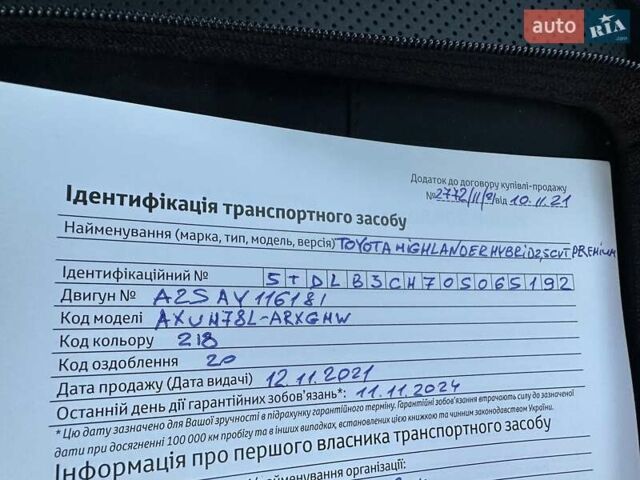 auto RIA
.com
Додаток до договору купівлі-продажу
№2772/11/ від 10.11.21
Ідентифікація транспортного засобу
Найменування (марка, тип, модель, версія) TOYOTA HIGHLANDER HYBRID 2,5 CVT PREMIUM
Ідентифікаційний № 5TDLB3CH70S065192
Двигун № A25AY116181
Код моделі AXUH78L-ARXGHW
Код кольору 218
Код оздоблення 20
Дата продажу (Дата видачі) 12.11.2021
Останній день дії гарантійних зобов'язань*: 11.11.2024
* Цю дату зазначено для Вашої зручності в підрахунку гарантійного терміну. Гарантійні зобов'язання втрачають силу до зазначеної
дати при досягненні 100 000 км пробігу та в інших випадках, встановлених цією книжкою та чинним законодавством України.
Інформація про першого власника транспортного засобу
найменування організації: